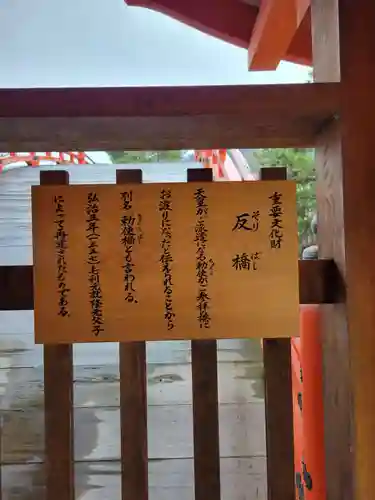 重要文化財
反橋
そり ばし
天皇がご派遣になる勅使がご参拝に
お渡りになったと伝えられることから
別名 勅使橋とも言われる。
弘治三年(一五五七)毛利元就隆元父子
によって再建されたものである。